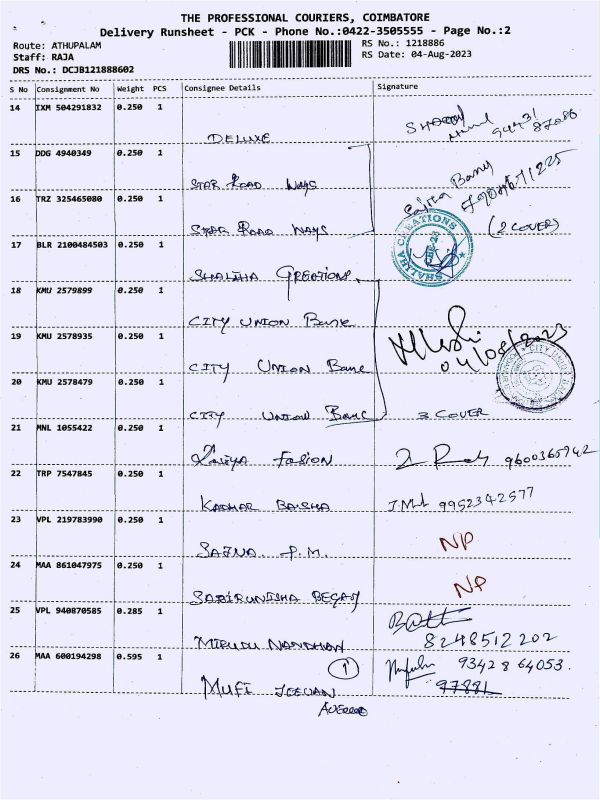 THE PROFESSIONAL COURIERS, COIMBATORE
Delivery Runsheet - PCK - Phone No.:0422-3505555 - Page No.:2
Route: ATHUPALAM
RS No.: 1218886
Staff: RAJA
RS Date: 04-Aug-2023
DRS No.: DCJB121888602
S No Consignment No Weight PCS Consignee Details Signature
14 IXM 504291832 0.250 1
DELUXE
15 DDG 4940349 0.250 1
STAR ROAD WAYS
16 TRZ 325465080 0.250 1
STAR ROAD WAYS (2 COVER)
17 BLR 2100484503 0.250 1
SHALIHA CREATIONS
SHALIHA CREATIONS
CBE-23
18 KMU 2579899 0.250 1
CITY UNION BANK
19 KMU 2578935 0.250 1
04/08/2023
CITY UNION BANK
20 KMU 2578479 0.250 1
CITY UNION BANK 3 COVER
21 MNL 1055422 0.250 1
FASION 9600365942
22 TRP 7547845 0.250 1
KADHAR BASHA 9952342577
23 VPL 219783990 0.250 1
SAJNA P.M. NP
24 MAA 861047975 0.250 1
SABIRUNISHA BEGAM NP
25 VPL 940870585 0.285 1
MIRUDU NANDHAN 8248512202
26 MAA 600194298 0.595 1
1
9342864053
MUFI JEEVAN 97881